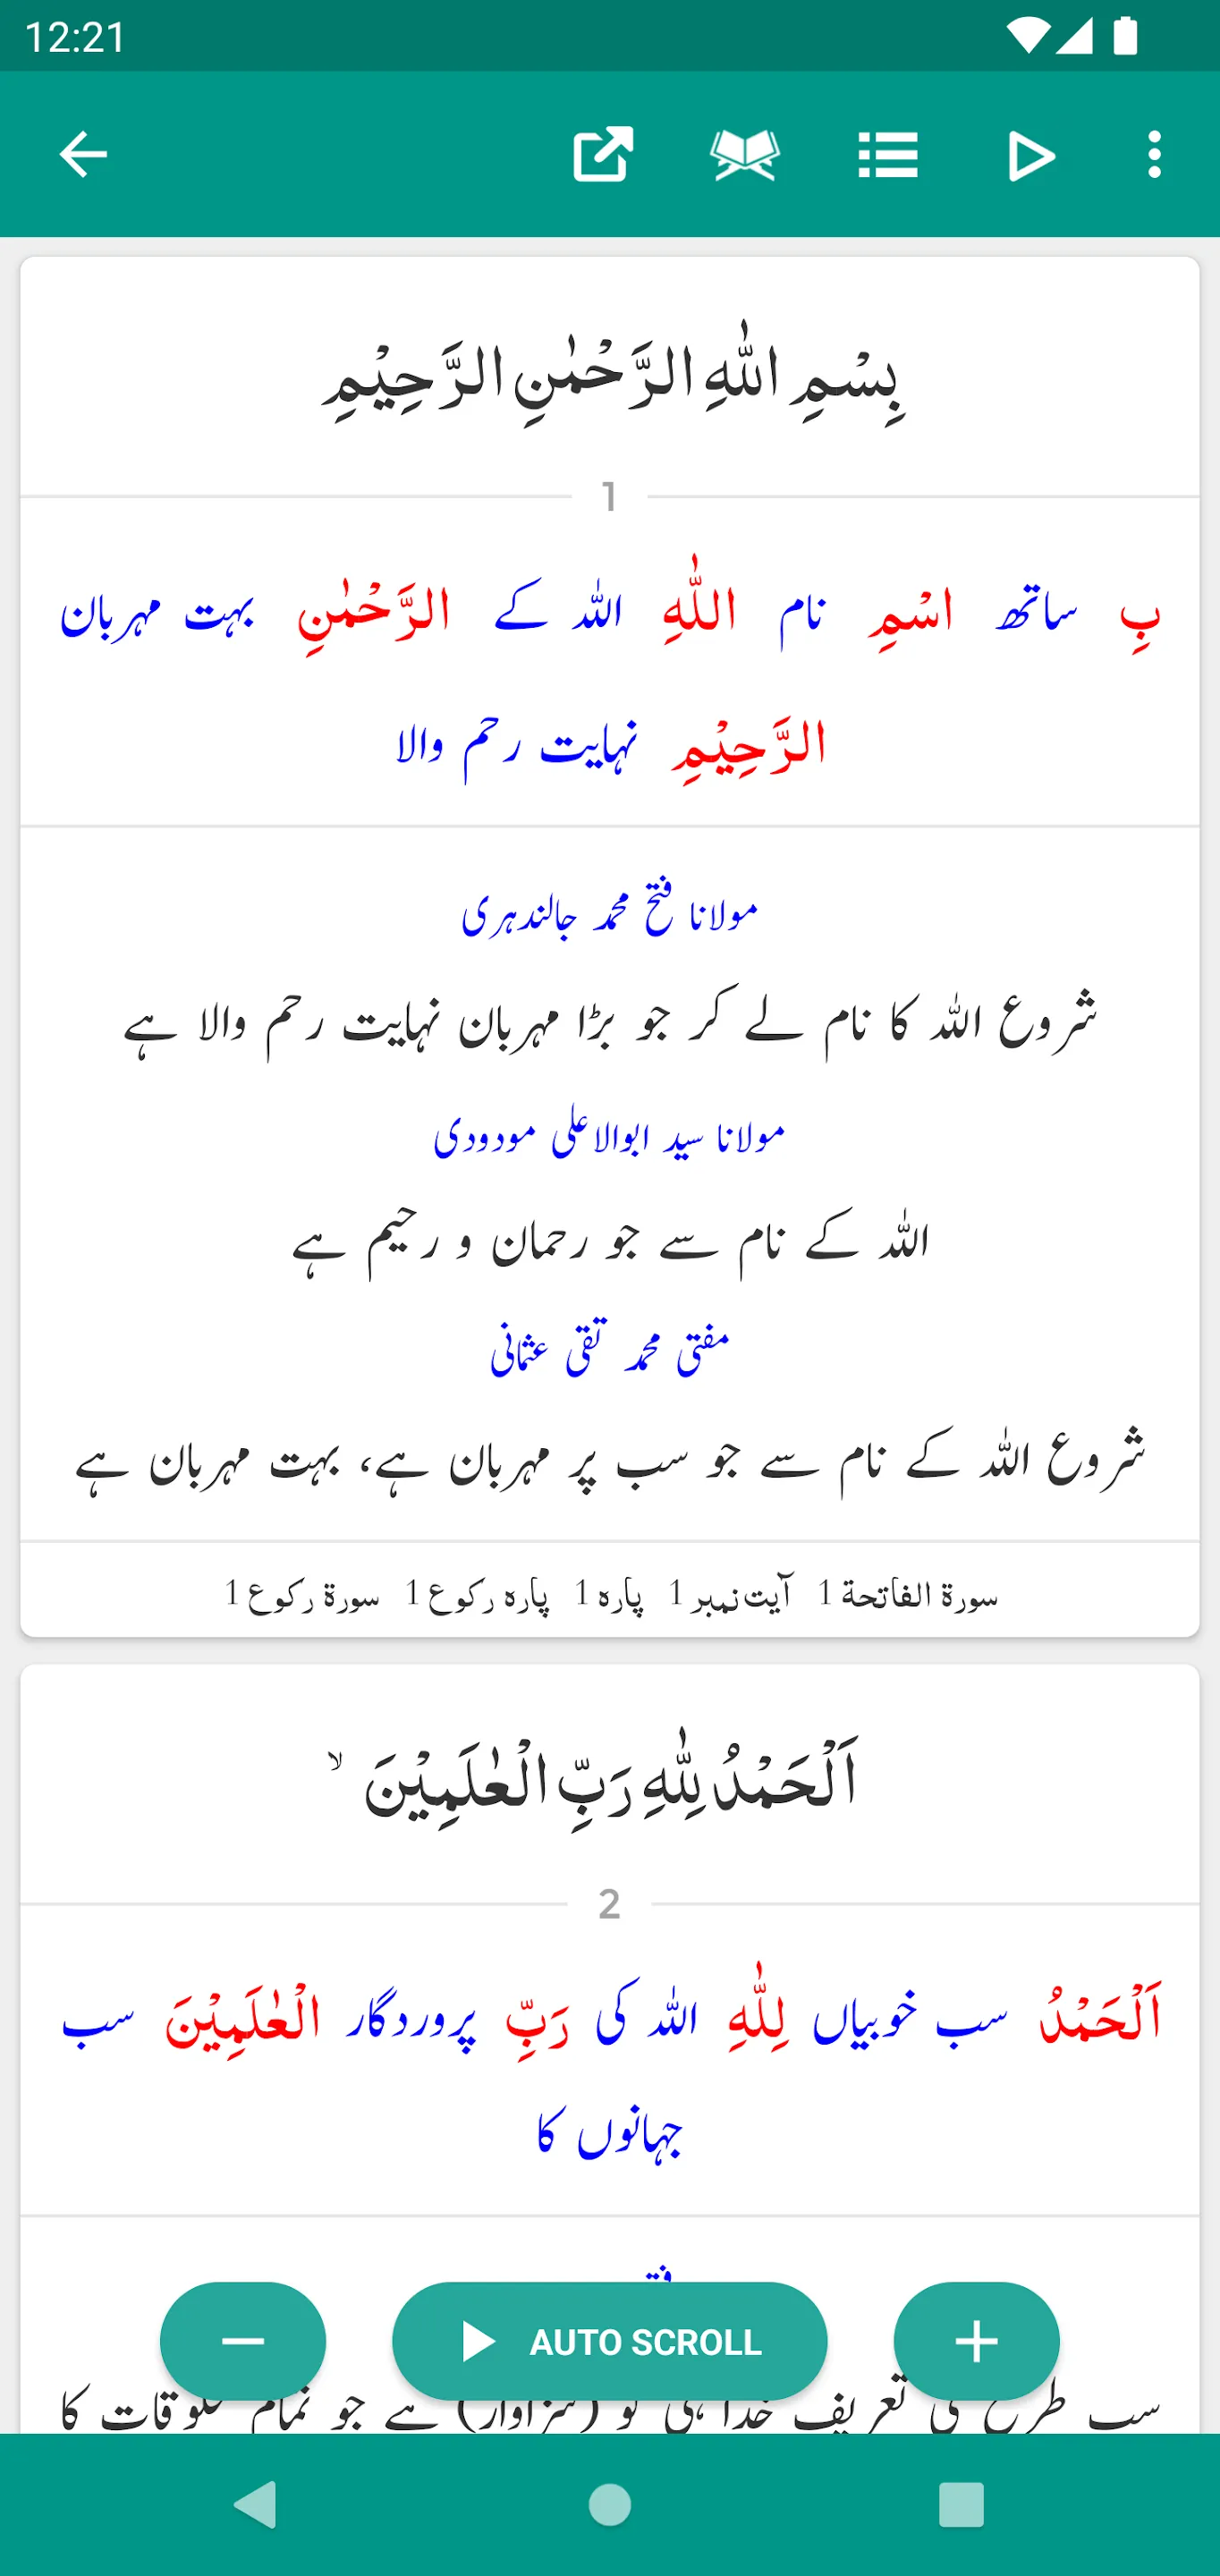 12:21
بِسْمِ اللّٰهِ الرَّحْمٰنِ الرَّحِیْمِ
1
بِ ساتھ اسْمِ نام اللّٰهِ اللہ کے الرَّحْمٰنِ بہت مہربان
الرَّحِیْمِ نہایت رحم والا
مولانا فتح محمد جالندہری
شروع الله کا نام لے کر جو بڑا مہربان نہایت رحم والا ہے
مولانا سید ابوالاعلی مودودی
الله کے نام سے جو رحمان و رحیم ہے
مفتی محمد تقی عثمانی
شروع اللہ کے نام سے جو سب پر مہربان ہے، بہت مہربان ہے
سورة الفاتحة 1 آیت نمبر 1 پارہ 1 پارہ رکوع 1 سورة رکوع 1
اَلْحَمْدُ لِلّٰهِ رَبِّ الْعٰلَمِیْنَ ۙ
2
اَلْحَمْدُ سب خوبیاں لِلّٰهِ اللہ کی رَبِّ پروردگار الْعٰلَمِیْنَ سب
جہانوں کا
AUTO SCROLL
سب طرح کی تعریف خدا ہی کو (سزاوار) ہے جو تمام مخلوقات کا